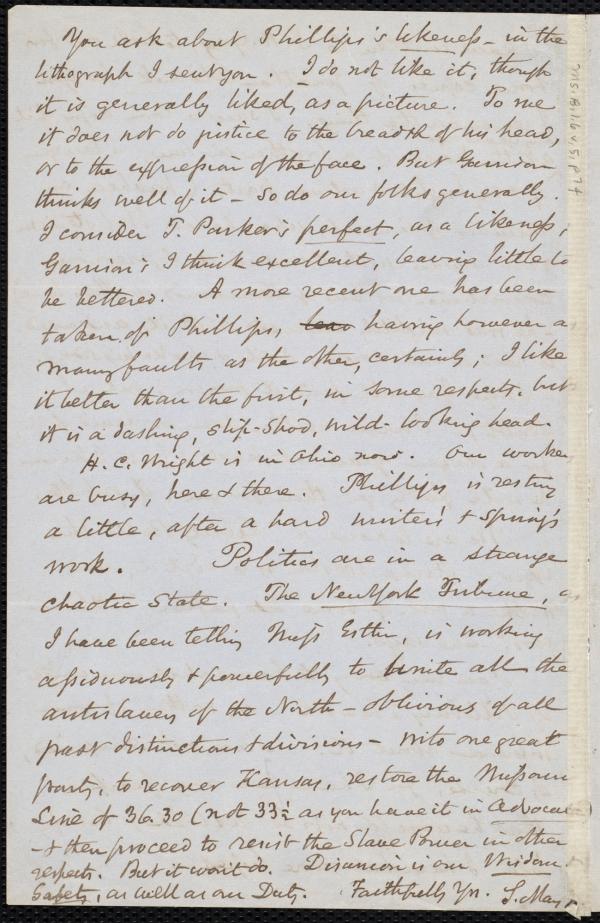 You ask about Phillips's likeness - in the
lithograph I sent you. I do not like it, though
it is generally liked, as a picture. To me
it does not do justice to the breadth of his head,
or to the expression of the face. But Garrison
thinks well of it - so do our folks generally.
I consider T. Parker's perfect, as a likeness,
Garrison's I think excellent, leaving little to
be bettered. A more recent one has been
taken of Phillips, having however as
many faults as the other, certainly; I like
it better than the first, in some respects, but
it is a dashing, slip-shod, wild-looking head.
H. C. Wright is in Ohio now. Our workers
are busy, here & there. Phillips is resting
a little, after a hard winter's & spring's
work. Politics are in a strange
chaotic state. The New York Tribune, as
I have been telling Miss Estlin, is working
assiduously & powerfully to unite all the
antislavery of the North - oblivious of all
past distinctions & divisions - into one great
party, to recover Kansas, restore the Missouri
Line of 36.30 (not 33½ as you have it in Advocate)
- & then proceed to resist the Slave Power in other
respects. But it won't do. Disunion is our Wisdom &
Safety, as well as our Duty. Faithfully Yrs. S. May Jr
Ms.B.1.6 v.5, p.74